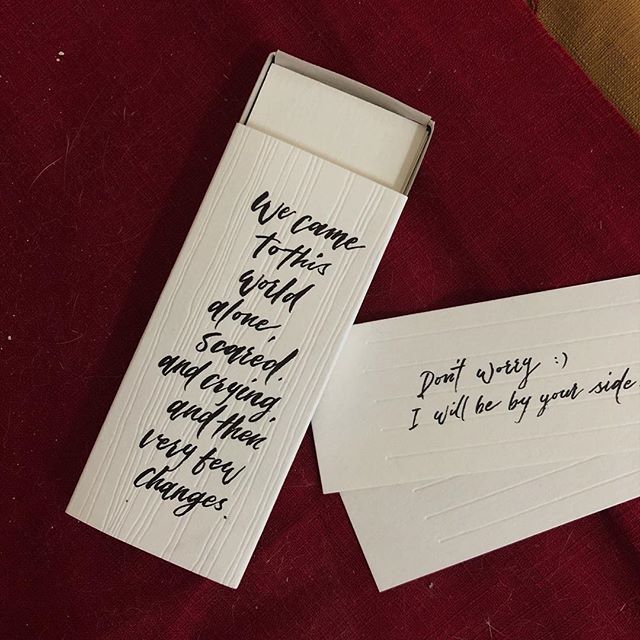 We came
to this
world
alone,
scared.
and crying,
and then
very few
changes.
Don't worry :)
I will be by your side